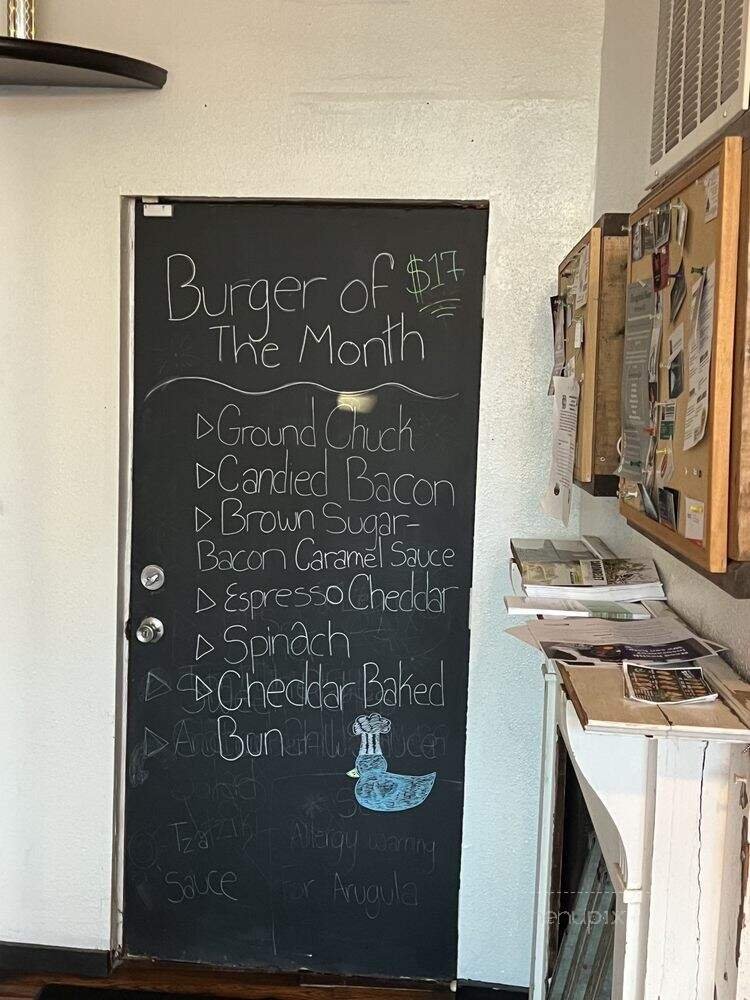 Burger of $17
The Month
Ground Chuck
Candied Bacon
Brown Sugar-
Bacon Caramel Sauce
Espresso Cheddar
Spinach
Cheddar Baked
Bun
Tzatziki Allergy warning
Sauce For Arugula
menupix